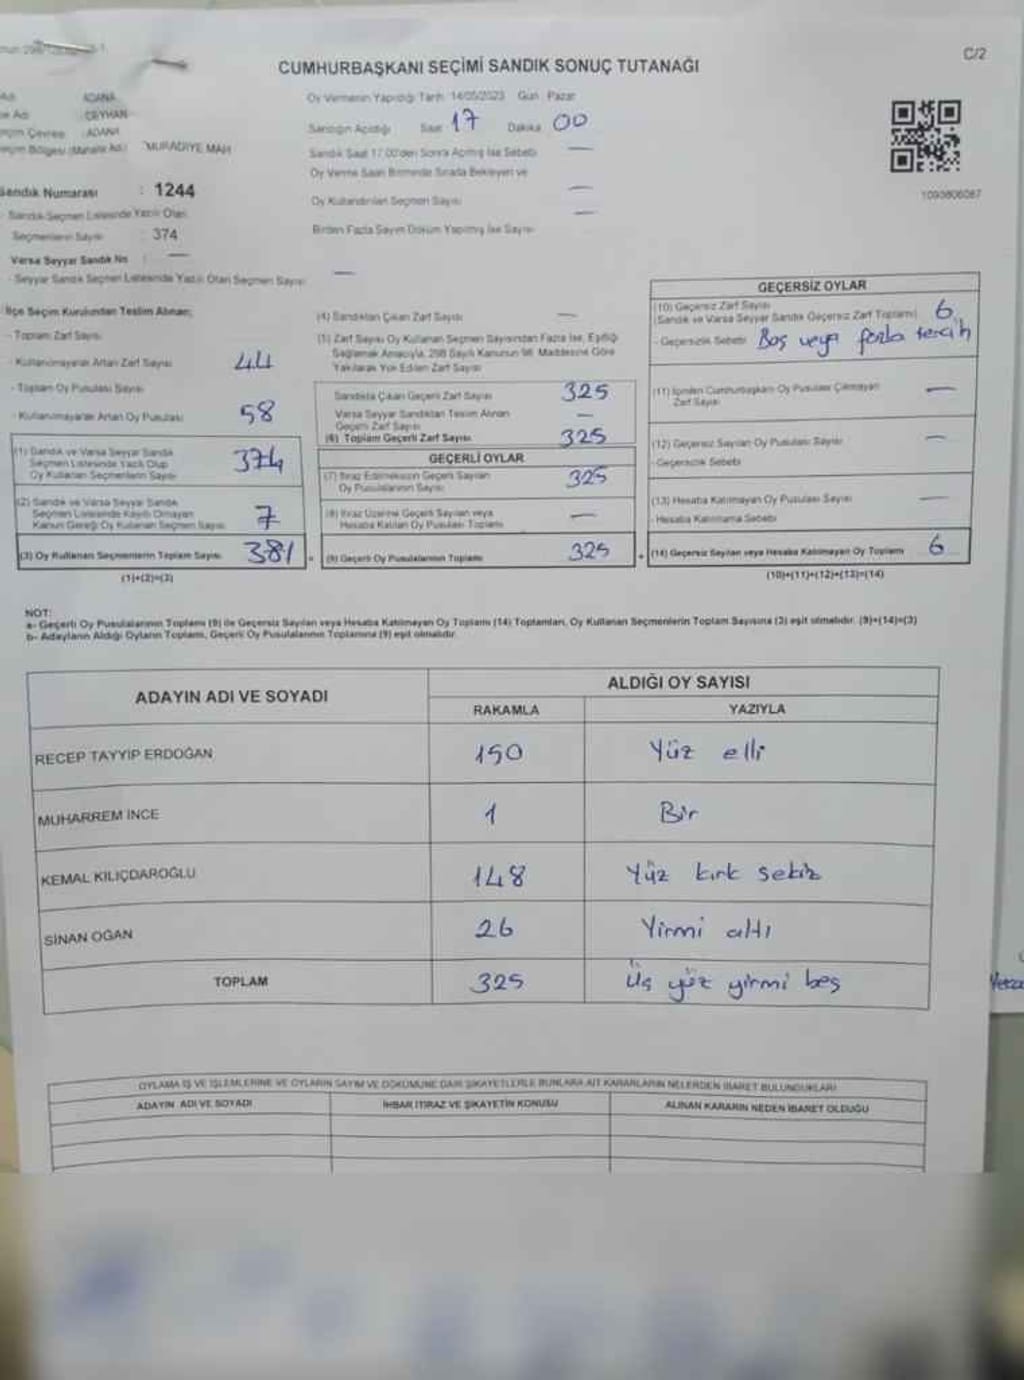 C/2
CUMHURBAŞKANI SEÇİMİ SANDIK SONUÇ TUTANAĞI
Oy Vermenin Yapıldığı Tarih 14/05/2023 Gün Pazar
ADANA
CEYHAN
Seçim Çevresi : ADANA
Seçim Bölgesi (Mahalle Adı) MURADİYE MAH
Sandığın Açıldığı Saat 17 Dakika 00
Sandık Saat 17.00'den Sonra Açılmış İse Sebebi —
Oy Verme Saati Bitiminde Sırada Bekleyen ve
Oy Kullandırılan Seçmen Sayısı —
Birden Fazla Sayım Döküm Yapılmış İse Sayısı —
1090806087
Sandık Numarası : 1244
Sandık Seçmen Listesinde Yazılı Olan
Seçmenlerin Sayısı 374
Varsa Seyyar Sandık No : —
- Seyyar Sandık Seçmen Listesinde Yazılı Olan Seçmen Sayısı —
İlçe Seçim Kurulundan Teslim Alınan;
- Toplam Zarf Sayısı
- Kullanılmayarak Artan Zarf Sayısı 44
- Toplam Oy Pusulası Sayısı
- Kullanılmayarak Artan Oy Pusulası 58
(1) Sandık ve Varsa Seyyar Sandık
Seçmen Listesinde Yazılı Olup
Oy Kullanan Seçmenlerin Sayısı 374
(2) Sandık ve Varsa Seyyar Sandık
Seçmen Listesinde Kayıtlı Olmayan
Kanun Gereği Oy Kullanan Seçmen Sayısı 7
(3) Oy Kullanan Seçmenlerin Toplam Sayısı 381
(1)+(2)=(3)
(4) Sandıktan Çıkan Zarf Sayısı —
(5) Zarf Sayısı Oy Kullanan Seçmen Sayısından Fazla İse, Eşitliği
Sağlamak Amacıyla, 298 Sayılı Kanunun 98. Maddesine Göre
Yakılarak Yok Edilen Zarf Sayısı
Sandıkta Çıkan Geçerli Zarf Sayısı 325
Varsa Seyyar Sandıktan Teslim Alınan
Geçerli Zarf Sayısı —
(6) Toplam Geçerli Zarf Sayısı 325
GEÇERLİ OYLAR
(7) İtiraz Edilmeksizin Geçerli Sayılan
Oy Pusulalarının Sayısı 325
(8) İtiraz Üzerine Geçerli Sayılan veya
Hesaba Katılan Oy Pusulası Toplamı —
(9) Geçerli Oy Pusulalarının Toplamı 325
GEÇERSİZ OYLAR
(10) Geçersiz Zarf Sayısı
(Sandık ve Varsa Seyyar Sandık Geçersiz Zarf Toplamı) 6
- Geçersizlik Sebebi Boş veya fazla tercih
(11) İçinden Cumhurbaşkanı Oy Pusulası Çıkmayan
Zarf Sayısı —
(12) Geçersiz Sayılan Oy Pusulası Sayısı —
- Geçersizlik Sebebi
(13) Hesaba Katılmayan Oy Pusulası Sayısı —
- Hesaba Katılmama Sebebi
(14) Geçersiz Sayılan veya Hesaba Katılmayan Oy Toplamı 6
(10)+(11)+(12)+(13)=(14)
NOT:
a- Geçerli Oy Pusulalarının Toplamı (9) ile Geçersiz Sayılan veya Hesaba Katılmayan Oy Toplamı (14) Toplamları, Oy Kullanan Seçmenlerin Toplam Sayısına (3) eşit olmalıdır. (9)+(14)=(3)
b- Adayların Aldığı Oyların Toplamı, Geçerli Oy Pusulalarının Toplamına (9) eşit olmalıdır.
ADAYIN ADI VE SOYADI
ALDIĞI OY SAYISI
RAKAMLA YAZIYLA
RECEP TAYYİP ERDOĞAN 150 Yüz elli
MUHARREM İNCE 1 Bir
KEMAL KILIÇDAROĞLU 148 Yüz kırk sekiz
SİNAN OĞAN 26 Yirmi altı
TOPLAM 325 Üç yüz yirmi beş
OYLAMA İŞ VE İŞLEMLERİNE VE OYLARIN SAYIM VE DÖKÜMÜNE DAİR ŞİKAYETLERLE BUNLARA AİT KARARLARIN NELERDEN İBARET BULUNDUKLARI
ADAYIN ADI VE SOYADI İHBAR İTİRAZ VE ŞİKAYETİN KONUSU ALINAN KARARIN NEDEN İBARET OLDUĞU